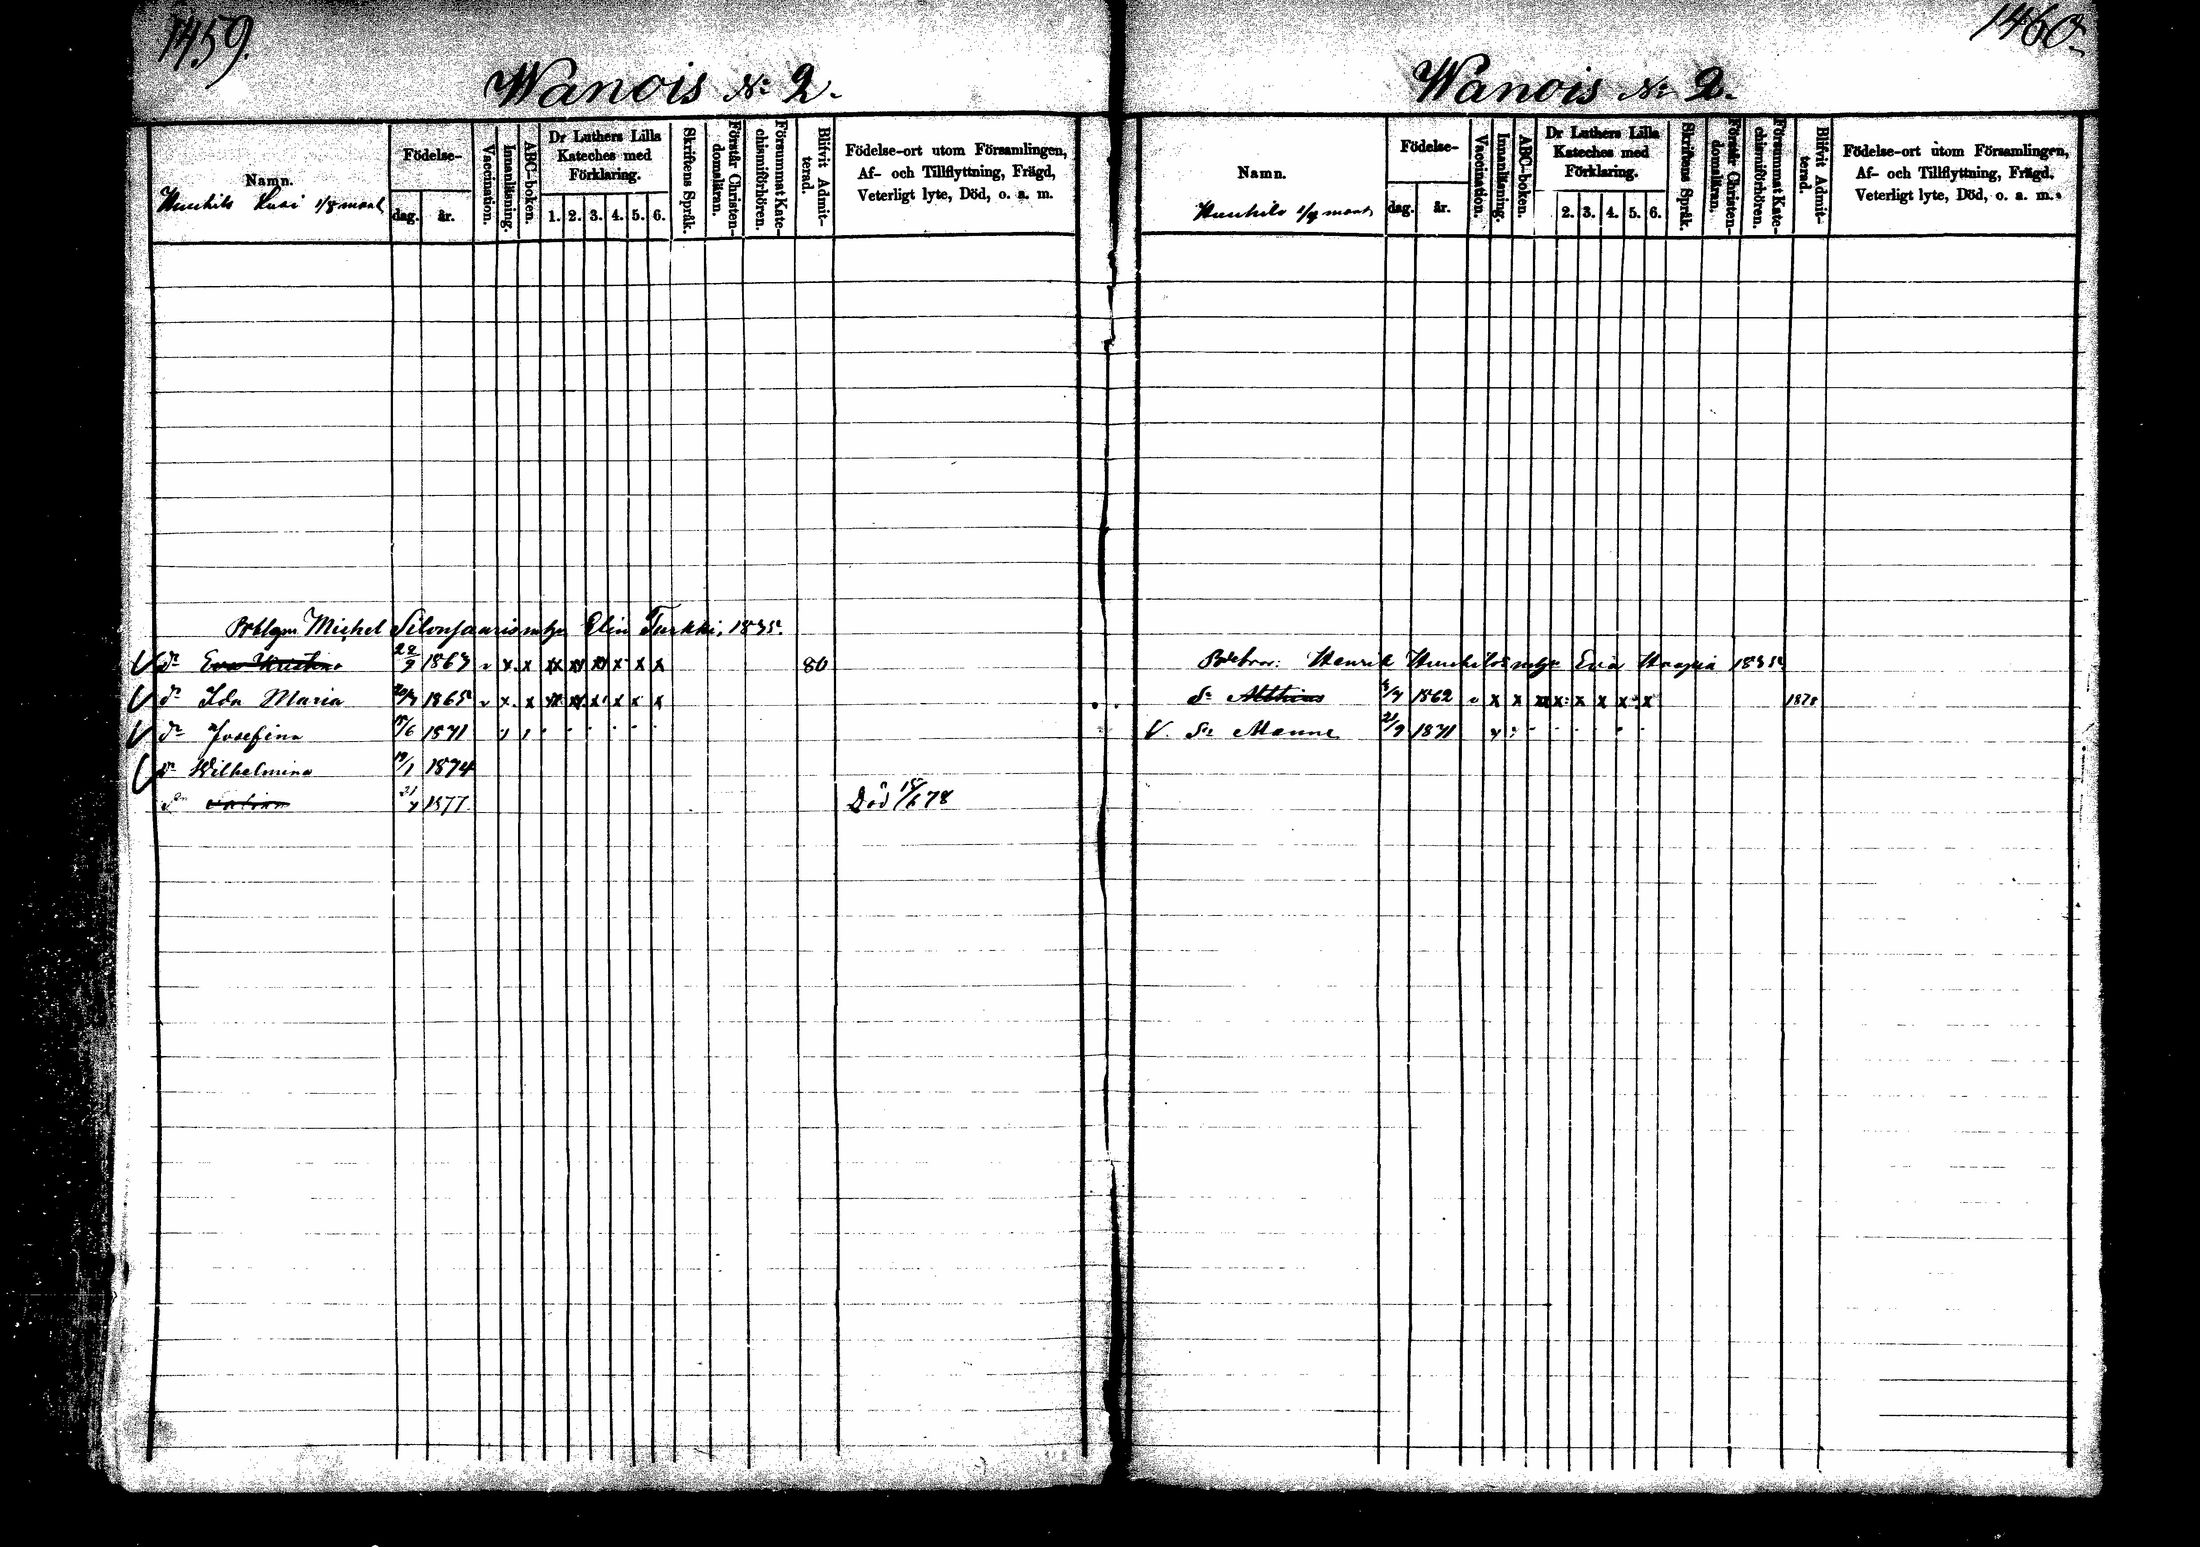 1459.
Wanois No 2.
Namn.
Födelse-
dag.
år.
Vaccination.
Innanläsning.
ABC-boken.
Dr Luthers Lilla
Kateches med
Förklaring.
1. 2. 3. 4. 5. 6.
Skriftens Språk.
Förstår Christen-
domsläran.
Försummat Kate-
chismiförhören.
Blifvit Admit-
terad.
Födelse-ort utom Församlingen,
Af- och Tillflyttning, Frägd,
Veterligt lyte, Död, o. a. m.
1/8 mant
Michel Elin Turkki, 1835.
dr Eva Kristina 22/9 1863 v x x x x x x x x 80
dr Ida Maria 1865 v x x x x x x x x
dr Josefina 1871
dr Wilhelmina 19/1 1874
dr 1877 Död 78
1460.
Wanois No 2.
Namn.
Födelse-
dag.
år.
Vaccination.
Innanläsning.
ABC-boken.
Dr Luthers Lilla
Kateches med
Förklaring.
2. 3. 4. 5. 6.
Skriftens Språk.
Förstår Christen-
domsläran.
Försummat Kate-
chismiförhören.
Blifvit Admit-
terad.
Födelse-ort utom Församlingen,
Af- och Tillflyttning, Frägd,
Veterligt lyte, Död, o. a. m.
mant
Henrik Eva 1835
Sn 1862 v x x x x x x x x 1878
V. Sn Manne 21/9 1871